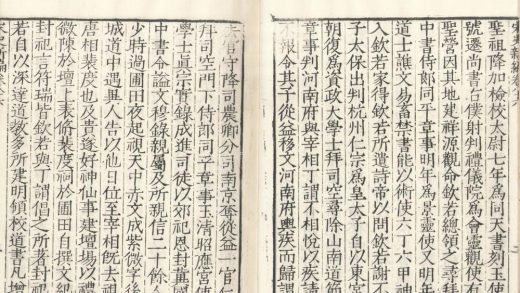 聖祖降加檢校太尉七年爲同天書刻玉使
號還尚書右僕射判禮儀院爲會靈觀使有
聖營因其地建祥源觀命欽若總領之尋拜
中書侍郎同平章事明年爲景靈使又明年
道士譙文易蓄禁書能以術使六丁六甲神
入欽若家得欽若所遺詩帝以問欽若謝不
子太保出判杭州仁宗爲皇太子自以東宮
朝復爲資政大學士拜司空尋除山南道節
章事判河南府與宰相丁謂不相悅以疾請
不報令其子從益移文河南府輿疾而歸謂
去官守降司農卿分司南京奪從益一官仁
拜司空門下侍郎同平章事玉清昭應宮使
學士眞宗實錄成進司徒以郊祀恩封冀國
中書令謚文穆錄親屬及所親信二十餘人
少時過圃田夜起視天中赤文成紫微字後
城道中遇異人告以他日位至宰相旣去視
唐相裴度也及貴遂好神仙事建壇塲以禮
微陳於壇上表脩裴度祠於圃田自撰文紀
封祀言符瑞皆欽若與丁謂倡之所著封祀
若自以深達道教多所建明領校道書凡增